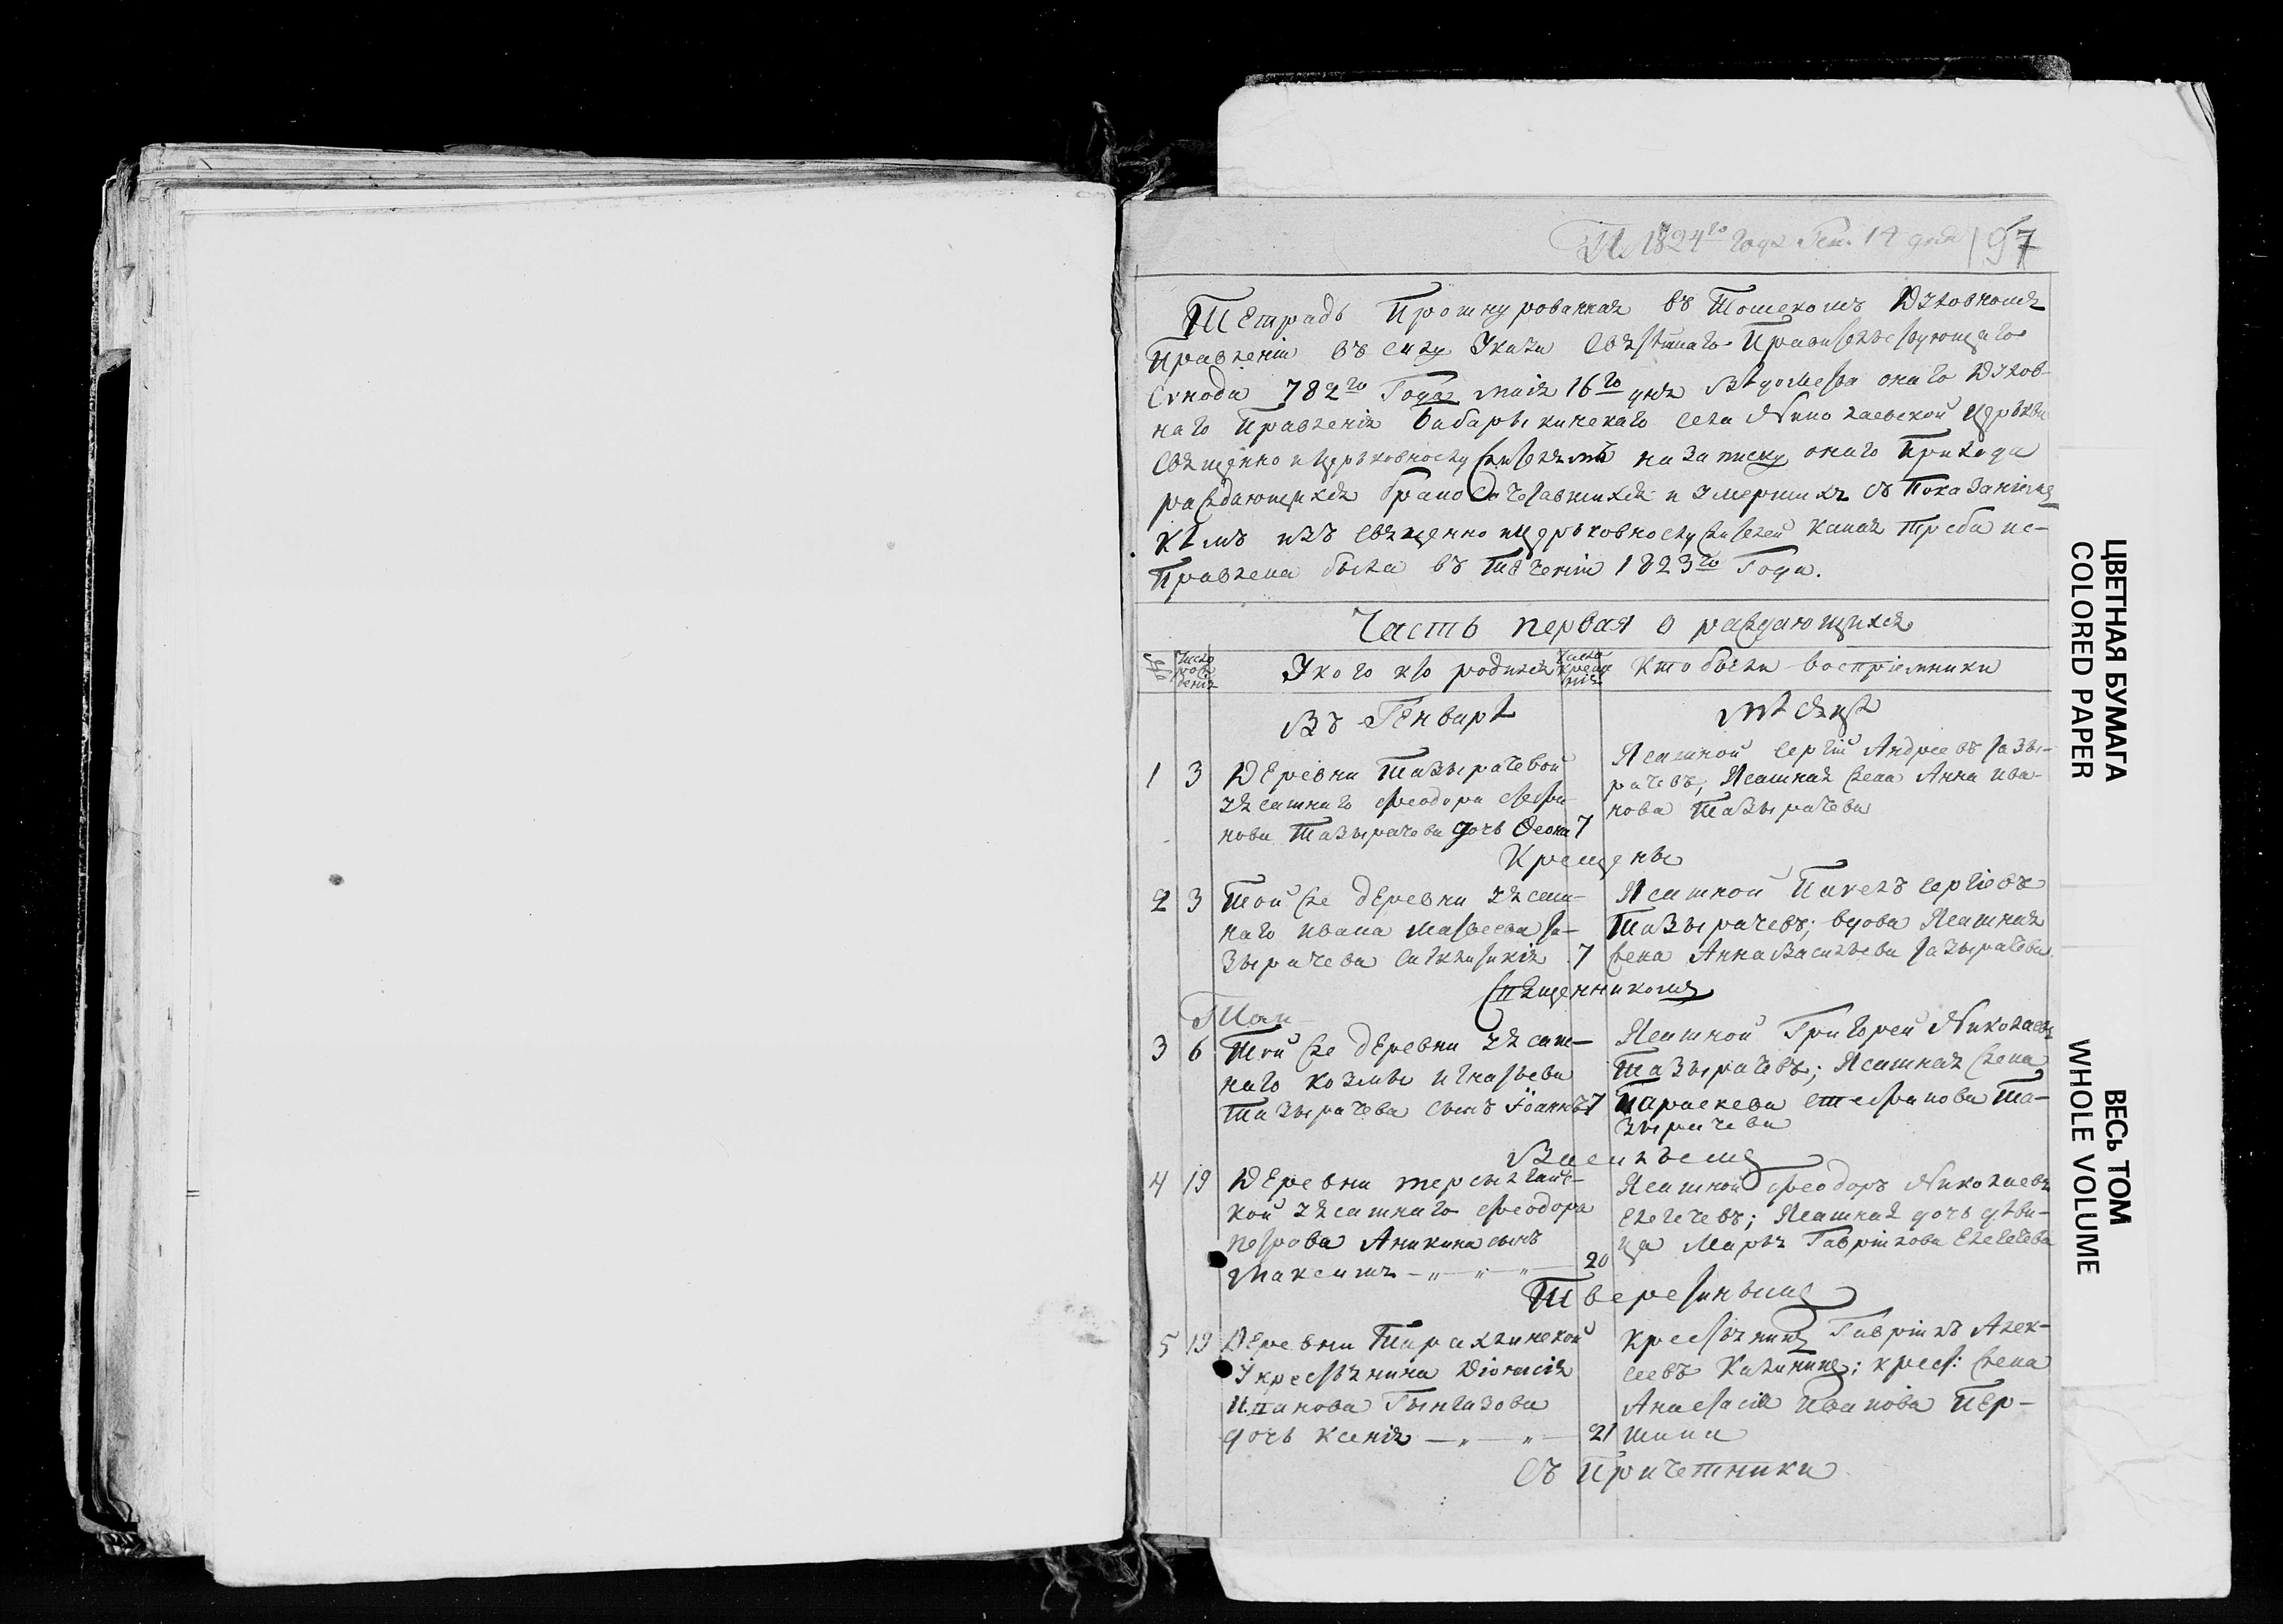 П. 1824го года Ген. 12 дня 197
Тетрадь Прошнурованная въ Томскомъ Духовномъ
Правленіи въ силу Указа Святѣйшаго Правительствующаго
Сѵнода 782го Года маія 16го дня вѣдомства онаго Духов-
наго Правленія Бабарыкинскаго села Николаевской церкви
священно и церьковнослужителямъ на записку онаго Прихода
раждающихся бракосочетавшихся и умершихъ съ показаніемъ
кѣмъ изъ священно и церьковнослужителей какая треба ис-
правлена была въ течении 1823го Года.
Часть первая о раждающихся
№ число рождения У кого кто родился число крещения Кто были восприемники
Въ Генварѣ мѣсяцѣ
1 3 Деревни Тазырачевой
ясашнаго Феодора Стефа-
нова Тазырачева дочь Феона 7
Ясашной Сергій Андреевъ Тазы-
рачевъ; Ясашная жена Анна Ива-
нова Тазырачева
Крещены
2 3 Той же деревни ясаш-
наго Ивана Матвеева Та-
зырачева 7
Ясашной Павелъ Сергіевъ
Тазырачевъ; вдова Ясашная
жена Анна Васильева Тазырачева
Священникомъ
3 6 Той же деревни ясаш-
наго Козмы Игнатьева
Тазырачева сынъ Іоаннъ 7
Ясашной Григорей Николаевъ
Тазырачевъ; Ясашная жена
Параскева Стефанова Та-
зырачева
Васильемъ
4 19 Деревни
кой ясашнаго Феодора
Петрова Аникина сынъ
Максимъ — „ — „ — „ — 20
Ясашной Феодоръ Николаевъ
Ежегечевъ; Ясашная дочь дѣви-
ца Марья Гавріилова Ежегечева
Тверетинымъ
5 19 Деревни Тарахлинской
У крестьянина Діонисія
Иванова Гынгазова
дочь Ксенія — „ — „ — 21
крестьянинъ Гавріилъ Алек-
сеевъ Калининъ; крест: жена
Анастасія Иванова Пер-
шина
Съ Причетники
ЦВЕТНАЯ БУМАГА
COLORED PAPER
ВЕСЬ ТОМ
WHOLE VOLUME